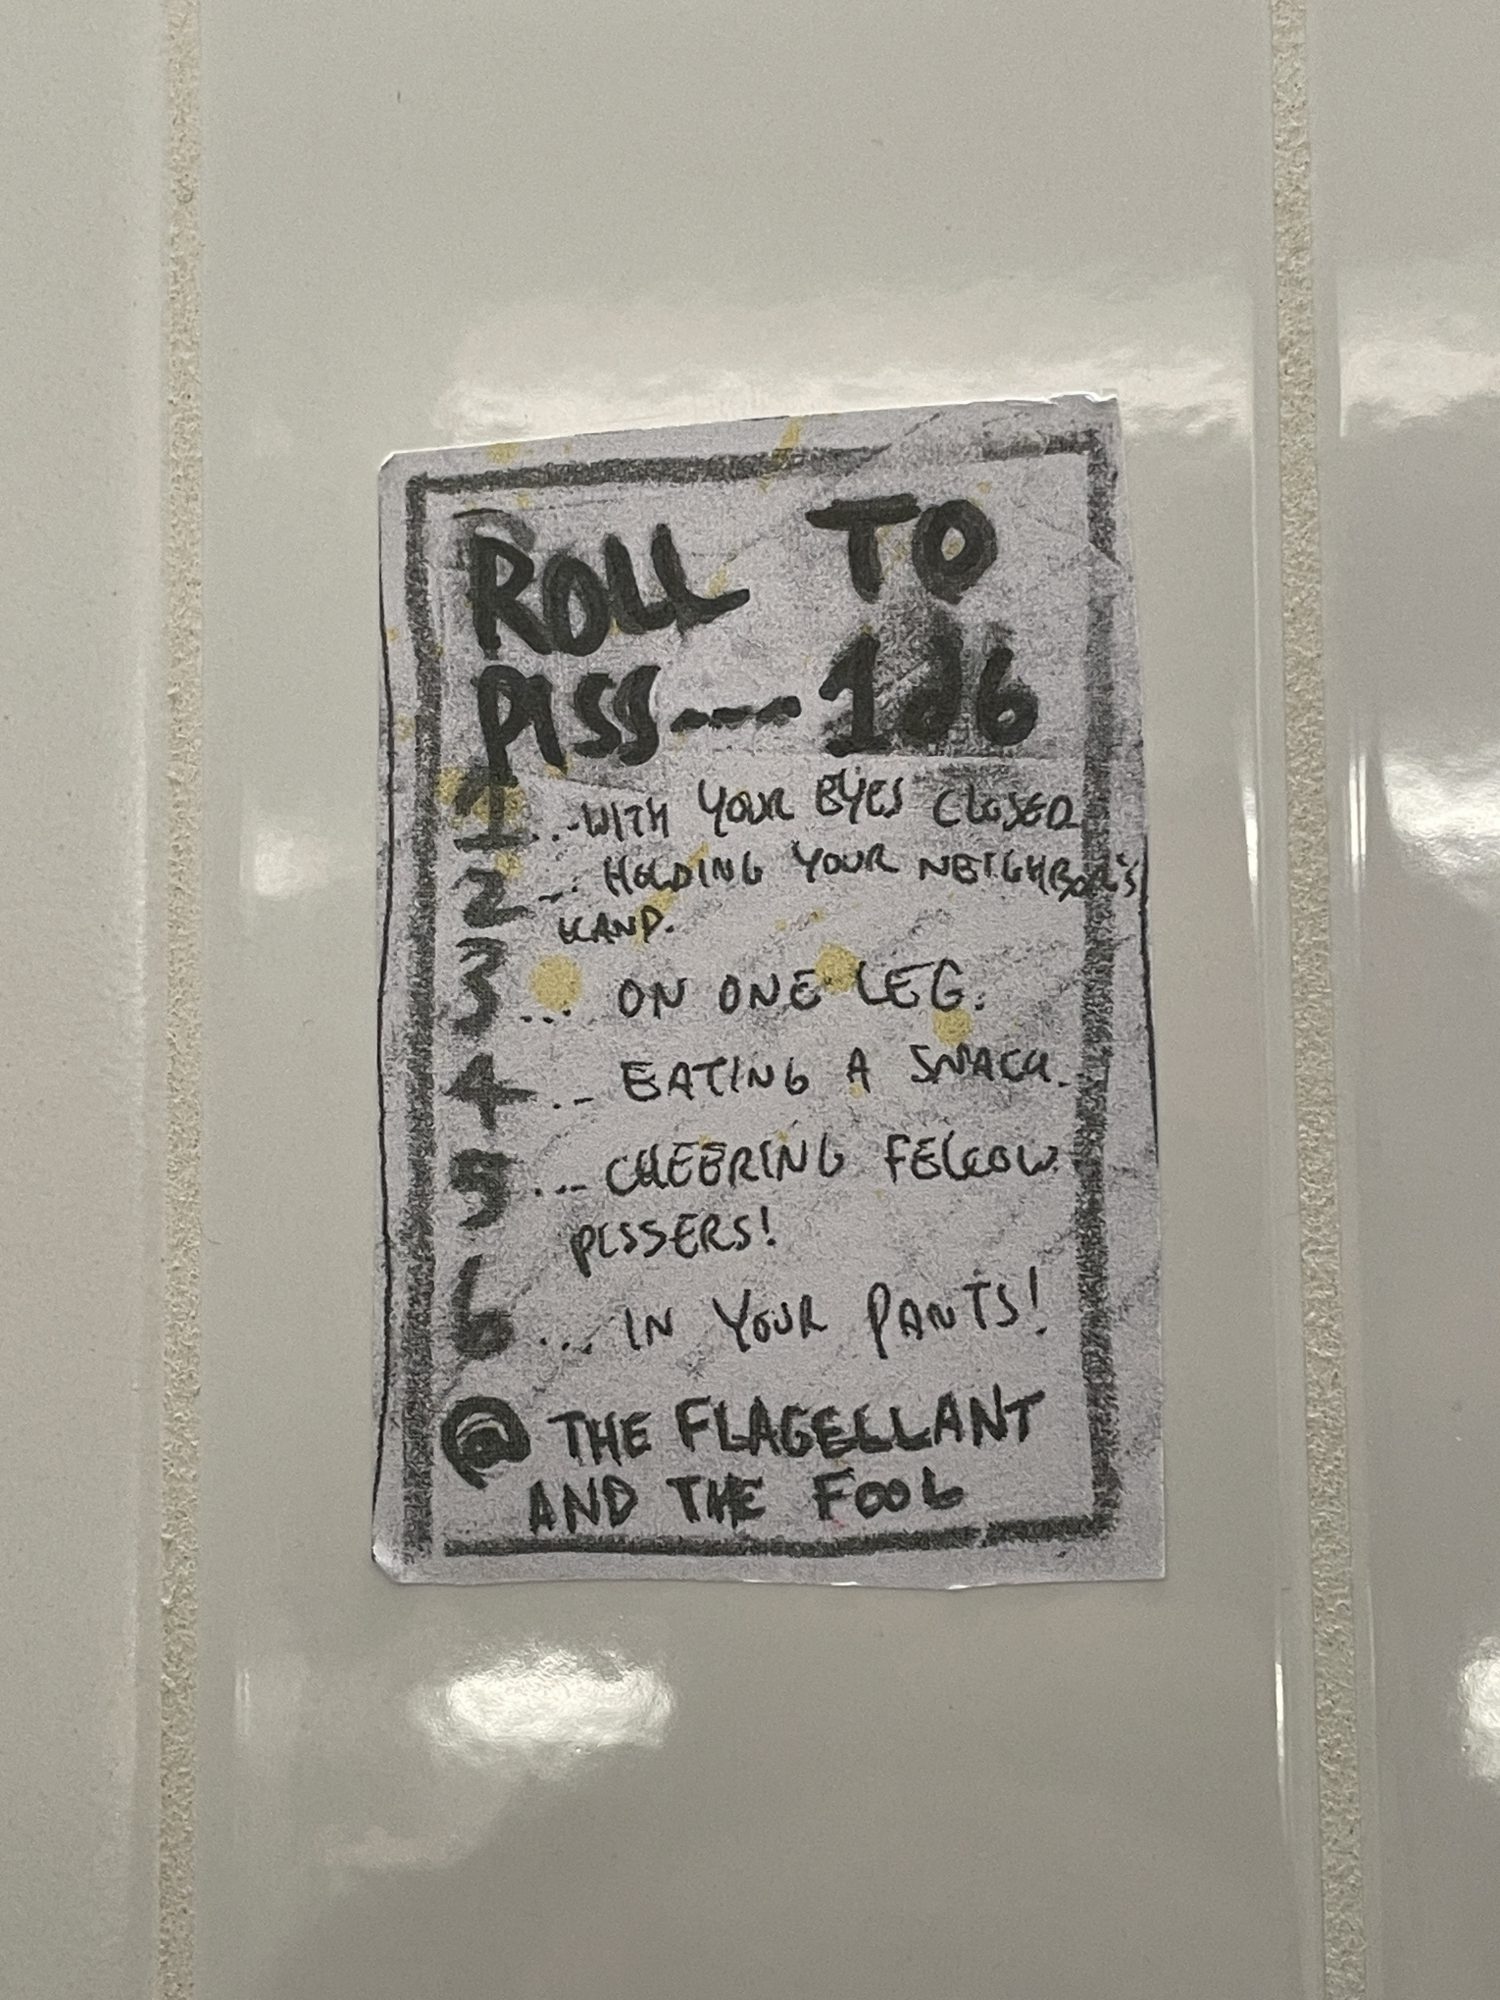 ROLL TO
PISS---- 1d6
1...WITH YOUR EYES CLOSED
2... HOLDING YOUR NEIGHBOR'S
HAND.
3... ON ONE LEG.
4... EATING A SNACK.
5... CHEERING FELLOW
PISSERS!
6... IN YOUR PANTS!
@ THE FLAGELLANT
AND THE FOOL